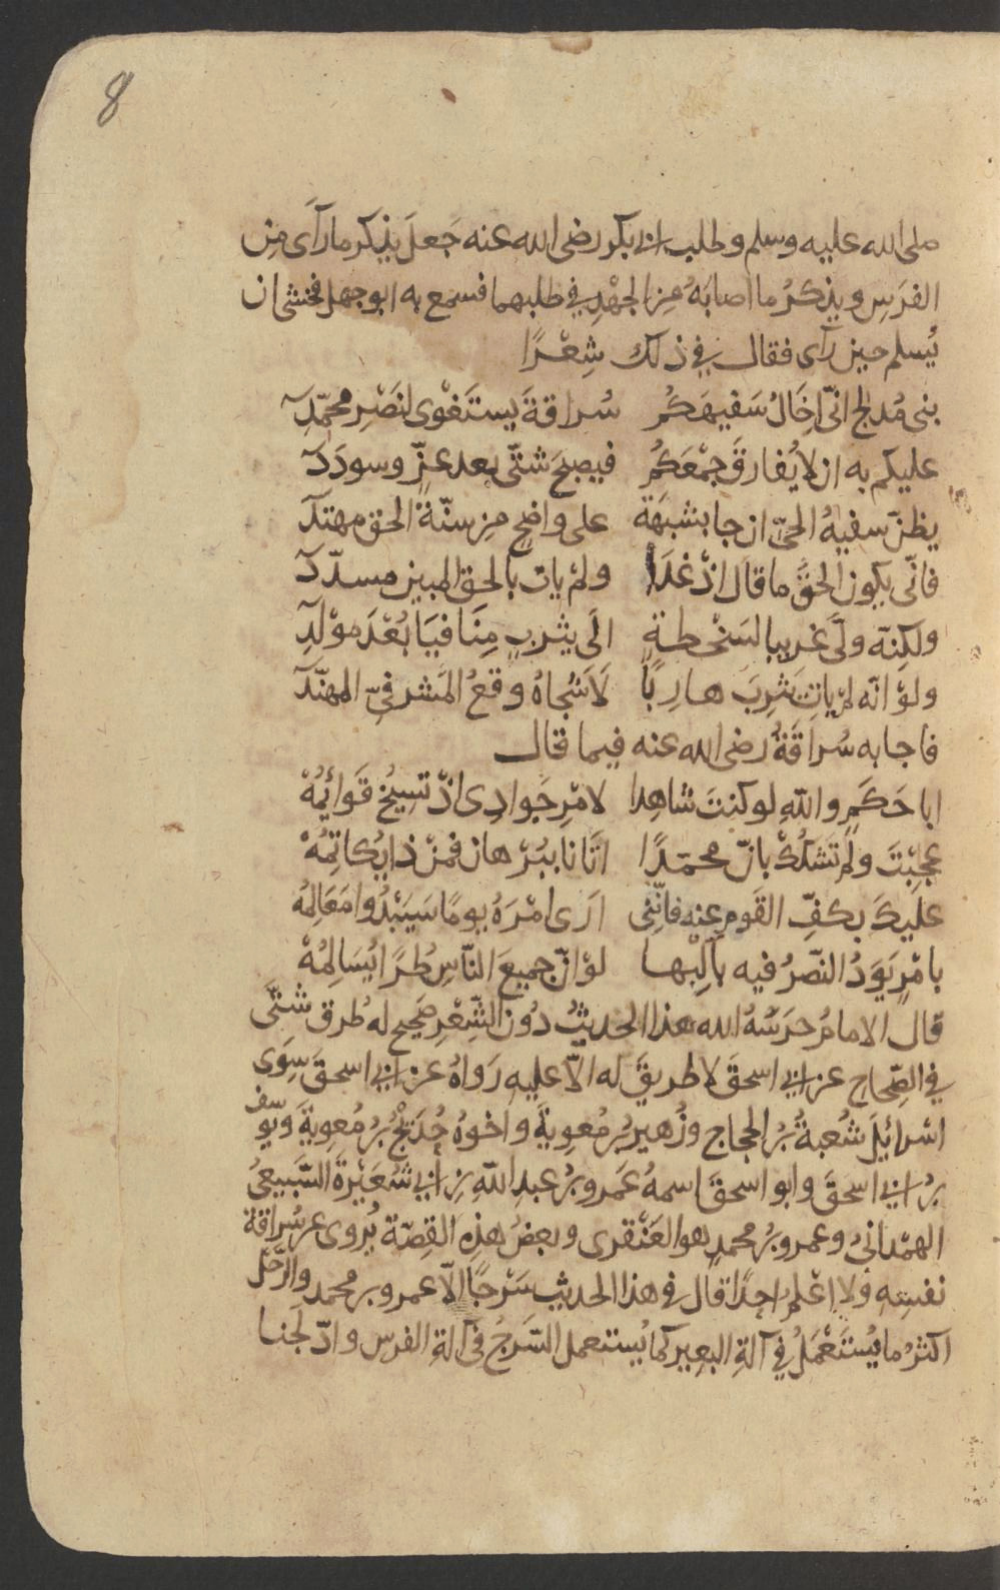 8
صلى الله عليه وسلم وطلب ابى بكر رضى الله عنه جَعلَ يذكر ما رآى مِن
الفرَسِ ويذكرُ ما اصابَهُ مِن الجهْدِ فى طلبهما فسمع به ابو جهل فخشى ان
يُسلم حين رآى فقال فى ذلك شِعْرًا
بنى مُدلج انّى اِخَالُ سَفيهَكُم سُراقةَ يستَغْوى لنَصْرِ محمّدِ
عليكم به ان لا يُفارقَ جَمْعَكُم فيصبحَ شتّى بعد عزٍّ وسودَد
يظنّ سفيهُ الحىّ ان جا بشبهَة على واضحٍ مِن سنّة الحق مهتد
فانّى يكون الحقّ ما قال اذْ غدَا ولم يات بالحق المبين مسدّد
ولكِنه ولّى غريبا لسَخْطةٍ الَى يثربٍ مِنَا فيَا بُعْدَ موْلدِ
ولوْ انّه لم ياتِ يَثرِبَ هاربًا لَاَشجاهُ وقعُ المَشرفىّ المهنّد
فاجابه سُراقةُ رضى الله عنه فيما قال
ابا حَكَمٍ والله لو كنتَ شاهِدا لامْرِ جَوادِى اذْ تسيخُ قَوائمُهْ
عجِبْتَ ولَم تَشكُكْ بانّ محمّدًا اتَانا ببُرْهان فمَنْ ذا يُكاتِمُهْ
عليكَ بكفِّ القَوم عنه فانّنِى ارَى امْرَهُ يومًا سَيَبْدُوا مَعَالِمُهْ
بامْرٍ يَوَدُ النّصرُ فيه بآلِبْها لوْ انّ جميعَ النّاسِ طُرًا يُسَالِمُهْ
قال الامامُ حرَسَهُ الله هذا الحديثُ دُونَ الشِّعْرِ صَحيح له طُرق شتَّى
فى الصِّحاح عن ابى اسحقَ لا طريقَ له الّا عليه رَواهُ عن ابى اسحقَ سِوَى
اسْرائيلَ شُعبةُ بْرُ الحجاج وزُهيربرُ مُعوِيةَ واخوهُ حُدَيْجُ برُ مُعوِيةَ ويوسف
برُ ابى اسحقَ وابو اسحقَ اسمهُ عَمروبرُ عبدِ اللّهِ بن ابى شُعَيْرةَ السَّبيعىُ
الهمْدانىُ وعمروبرُ محمدٍ هو العَنْقرى وبعضُ هذِه القِصّة يُروى عن سُراقةَ
نفسِهِ ولا اعْلمُ احدًا قال فى هذا الحديث سَرْجًا الّا عمروبر محمد والرَّحْل
اكثرُ ما يُستَعْمَلُ فى آلةِ البعيرِ كما يُستعمل السَّرجُ فى آلةِ الفرس وادّلَجنا